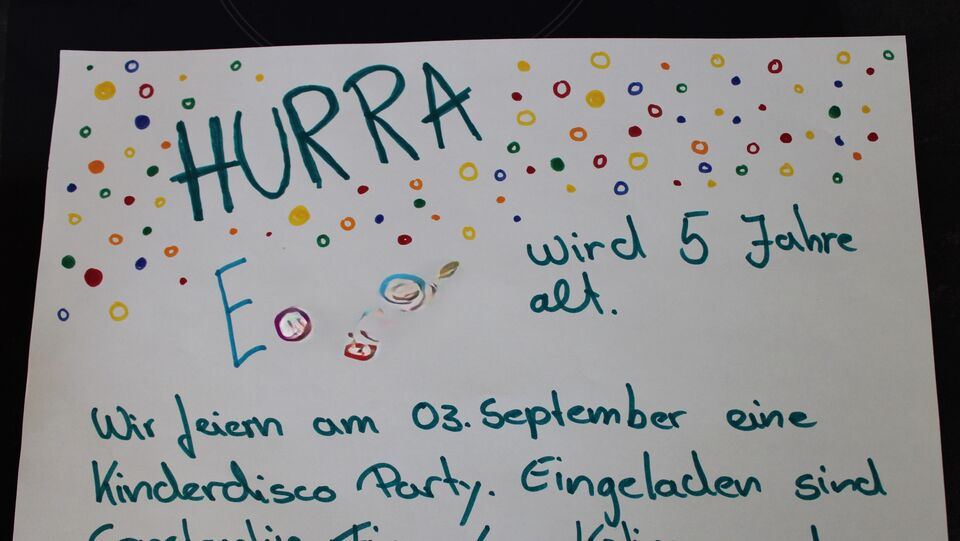 HURRA
E
wird 5 Jahre
alt.
Wir feiern am 03. September eine
Kinderdisco Party. Eingeladen sind